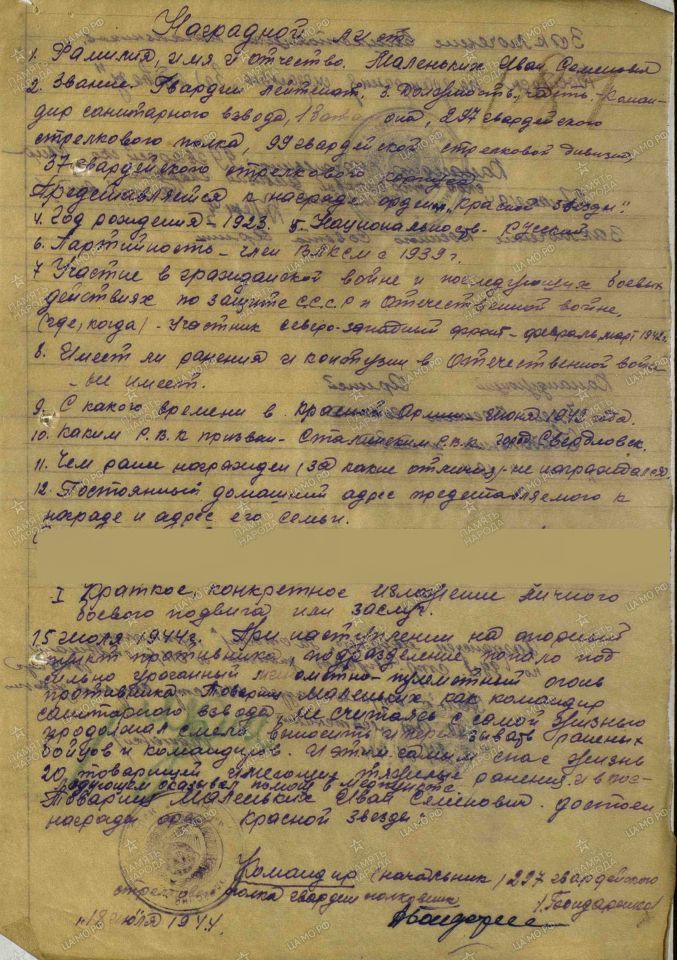 Наградной лист
1. Фамилия, имя и отчество. Маленьких Иван Семенович
2. Звание. Гвардии лейтенант, 3. Должность, часть. Коман-
дир санитарного взвода, 1 бата она, 297 гвардейского
стрелкового полка, 99 гвардейской стрелковой дивизии
37 гвардейского стрелкового корпуса
Представляется к награде орден "Красной Звезды".
4. Год рождения - 1923. 5. Национальность - Русский
6. Партийность - член ВЛКСМ с 1939 г.
7. Участие в гражданской войне и последующих боевых
действиях по защите СССР и Отечественной войне,
(где, когда) - Участник северо-западный фронт - февраль март 1942 г.
8. Имеет ли ранения и контузии в Отечественной войне
- не имеет.
9. С какого времени в Красной Армии - июня 1942 года.
10. Каким Р.В.К призван - Сталинским Р.В.К. город Свердловск.
11. Чем ранее награжден (за какие отличия) - не награждался.
12. Постоянный домашний адрес представляемого к
награде и адрес его семьи.
I Краткое, конкретное изложение личного
боевого подвига или заслуг.
15 июля 1944 г. При наступлении на опорный
пункт противника, подразделение попало под
сильно ураганный пулеметный огонь
противника. Товарищ Маленьких как командир
санитарного взвода, не считаясь с самой жизнью
продолжал смело выносить и перевязывать раненых
бойцов и командиров. И этим самым спас жизнь
20 товарищей имеющих тяжелые ранения и в пос-
ледующем оказывал помощь в медпункте.
Товарищ Маленьких Иван Семенович достоен
награды Красной Звезды.
Командир (начальник) 297 гвардейского
стрелкового полка гвардии полковник
/Бондаренко/
"18 июля 1944 г.
ПАМЯТЬ НАРОДА
ЦАМО.РФ